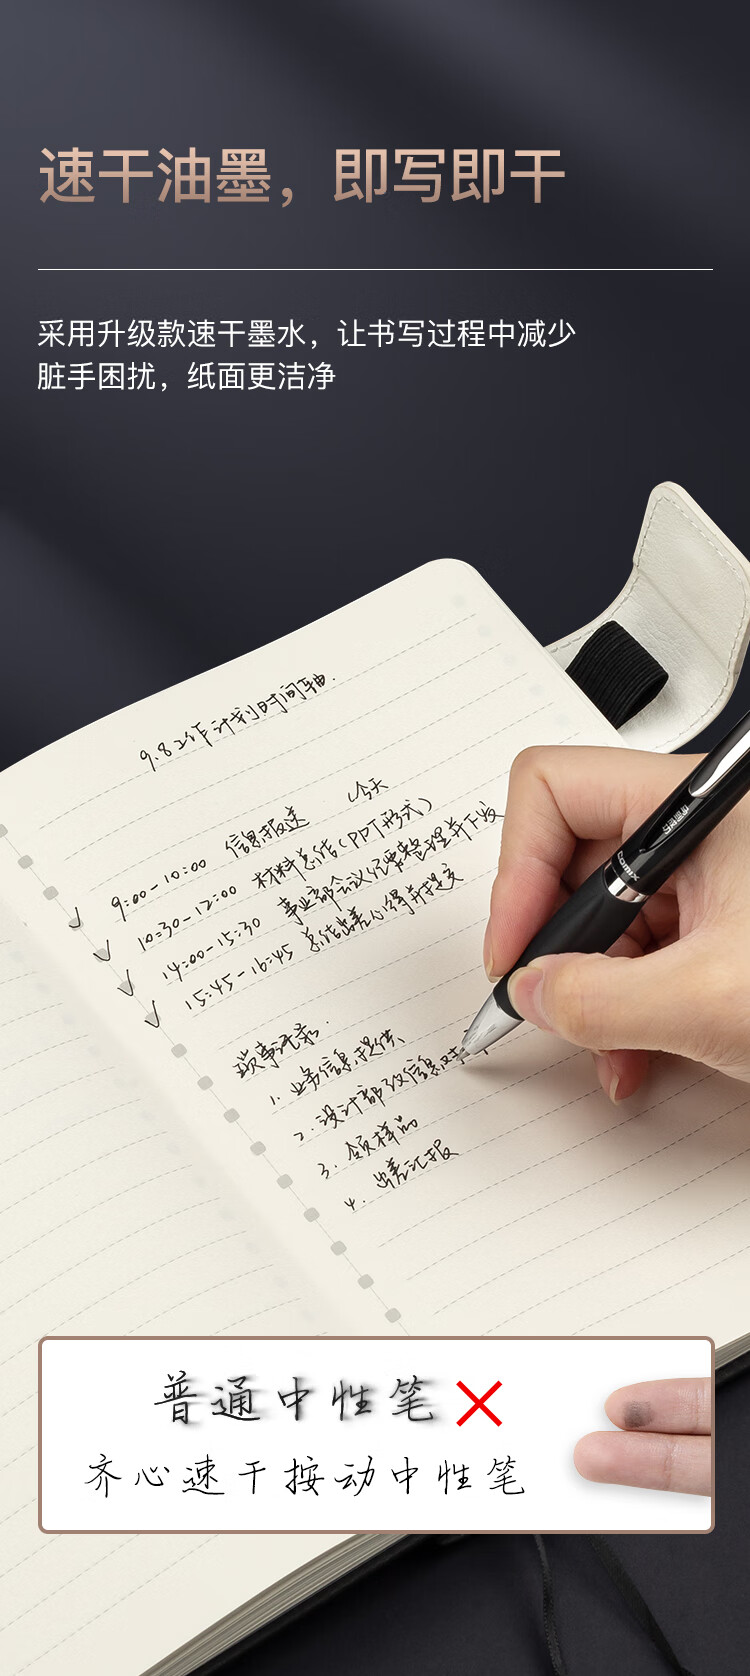 速干油墨，即写即干
采用升级款速干墨水，让书写过程中减少
脏手困扰，纸面更洁净
9.8工作计划时间轴.
今天
9:00-10:00 信息报送
10:30-12:00 材料总结(PPT形式)
14:00-15:30 事业部会议纪要整理并下发
15:45-16:45 总结出差心得并提交
琐事记录.
1. 业务信息提供.
2. 设计部改信息对
3. 领样品
4. 出差汇报
Comix
普通中性笔
齐心速干按动中性笔